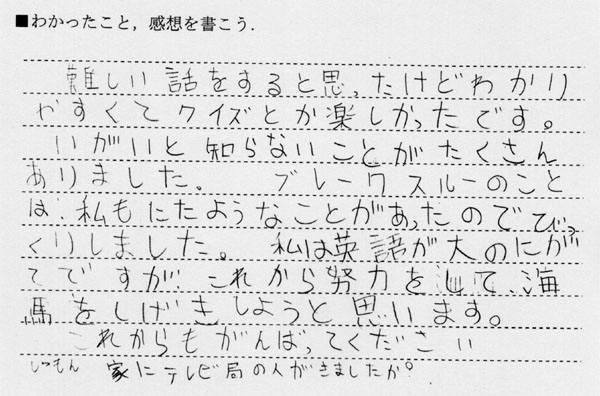 ■わかったこと，感想を書こう．
難しい話をすると思ったけどわかり
やすくてクイズとか楽しかったです。
いがいと知らないことがたくさん
ありました。 ブレークスルーのこと
は、私もにたようなことがあったのでびっ
くりしました。 私は英語が大のにが
てですが、これから努力をして、海
馬をしげきしようと思います。
これからもがんばってください
しつもん 家にテレビ局の人がきましたか?